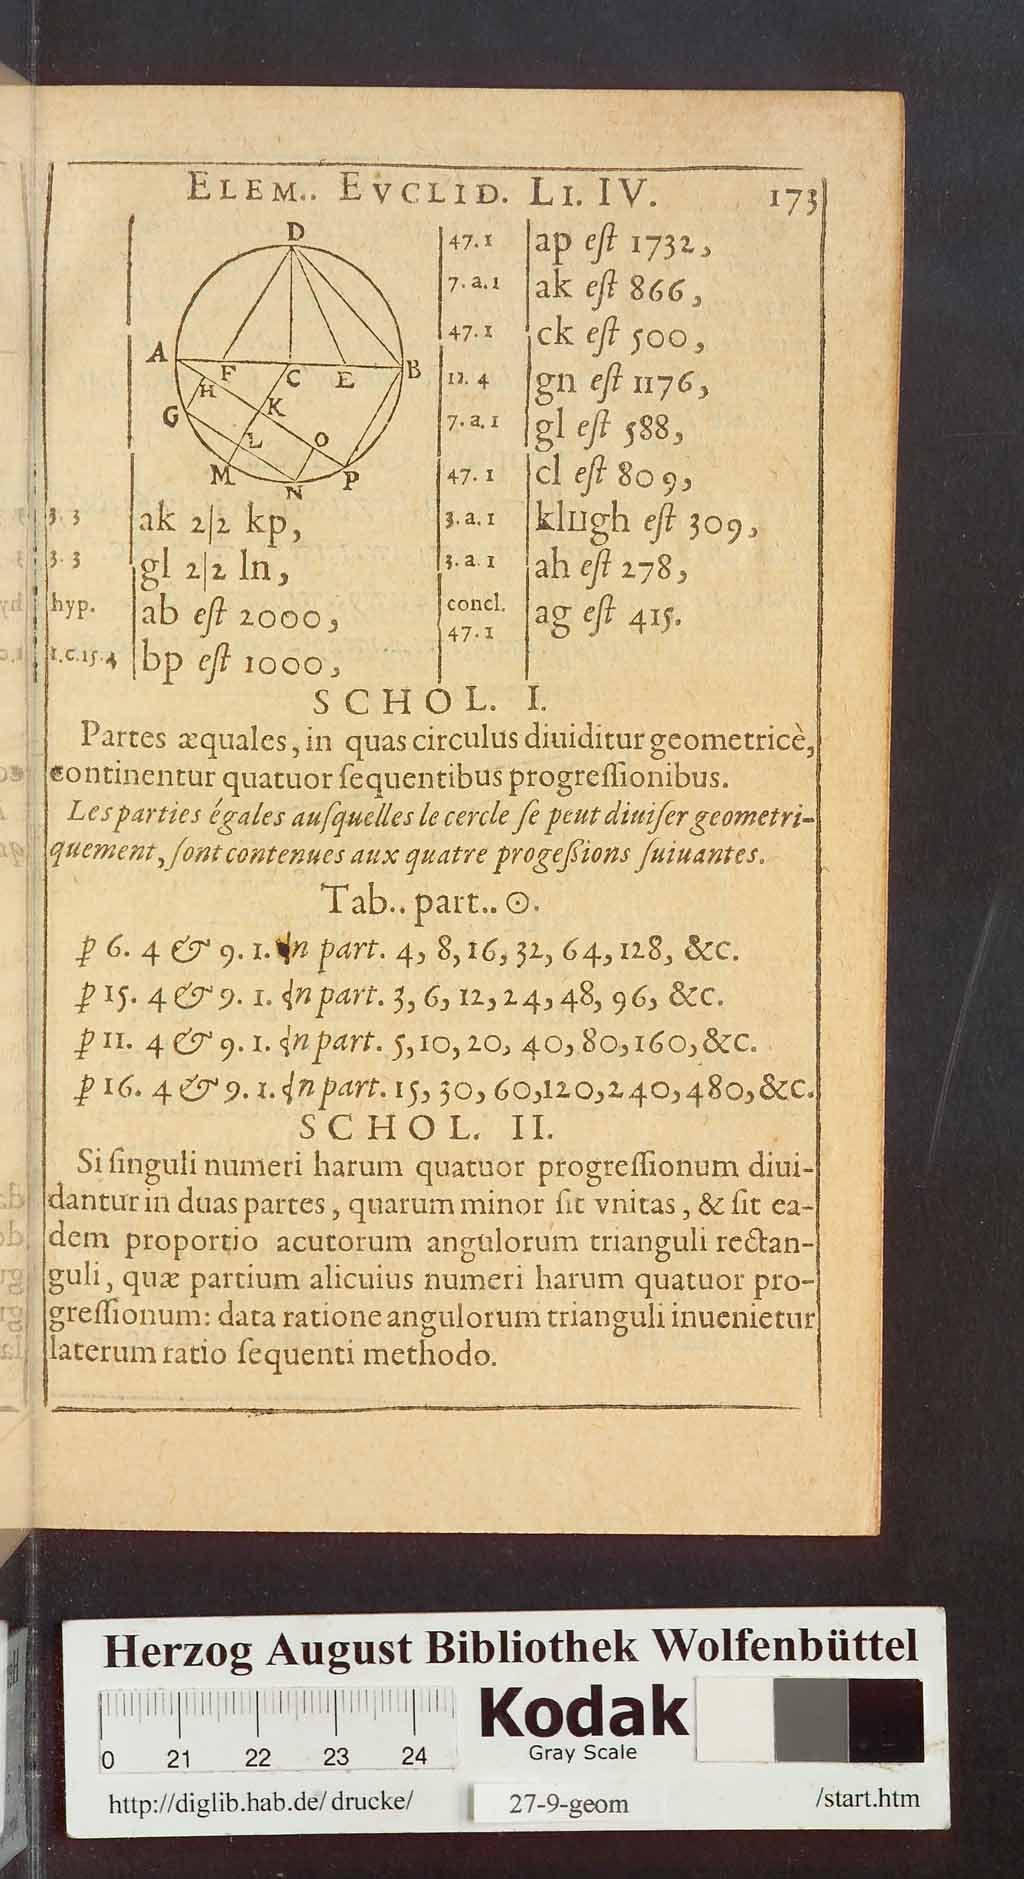 ELEM.. EVCLID. LI. IV. 173
D
A F C E B
H K
G L O
M N P
3. 3 ak 2|2 kp,
3. 3 gl 2|2 ln,
hyp. ab est 2000,
1.c.15.4 bp est 1000,
47. 1 ap est 1732,
7. a. 1 ak est 866,
47. 1 ck est 500,
12. 4 gn est 1176,
7. a. 1 gl est 588,
47. 1 cl est 809,
3. a. 1 klΠgh est 309,
3. a. 1 ah est 278,
concl. 
47. 1 ag est 415.
SCHOL. I.
Partes æquales, in quas circulus diuiditur geometricè,
continentur quatuor sequentibus progressionibus.
Les parties égales ausquelles le cercle se peut diuiser geometri-
quement, sont contenues aux quatre progessions suiuantes.
Tab.. part.. ☉.
ꝑ 6. 4 & 9. 1. In part. 4, 8, 16, 32, 64, 128, &c.
ꝑ 15. 4 & 9. 1. In part. 3, 6, 12, 24, 48, 96, &c.
ꝑ 11. 4 & 9. 1. In part. 5, 10, 20, 40, 80, 160, &c.
ꝑ 16. 4 & 9. 1. In part. 15, 30, 60, 120, 240, 480, &c.
SCHOL. II.
Si singuli numeri harum quatuor progressionum diui-
dantur in duas partes, quarum minor sit vnitas, & sit ea-
dem proportio acutorum angulorum trianguli rectan-
guli, quæ partium alicuius numeri harum quatuor pro-
gressionum: data ratione angulorum trianguli inuenietur
laterum ratio sequenti methodo.
Herzog August Bibliothek Wolfenbüttel
0 21 22 23 24
Kodak
Gray Scale
http://diglib.hab.de/ drucke/ 27-9-geom /start.htm